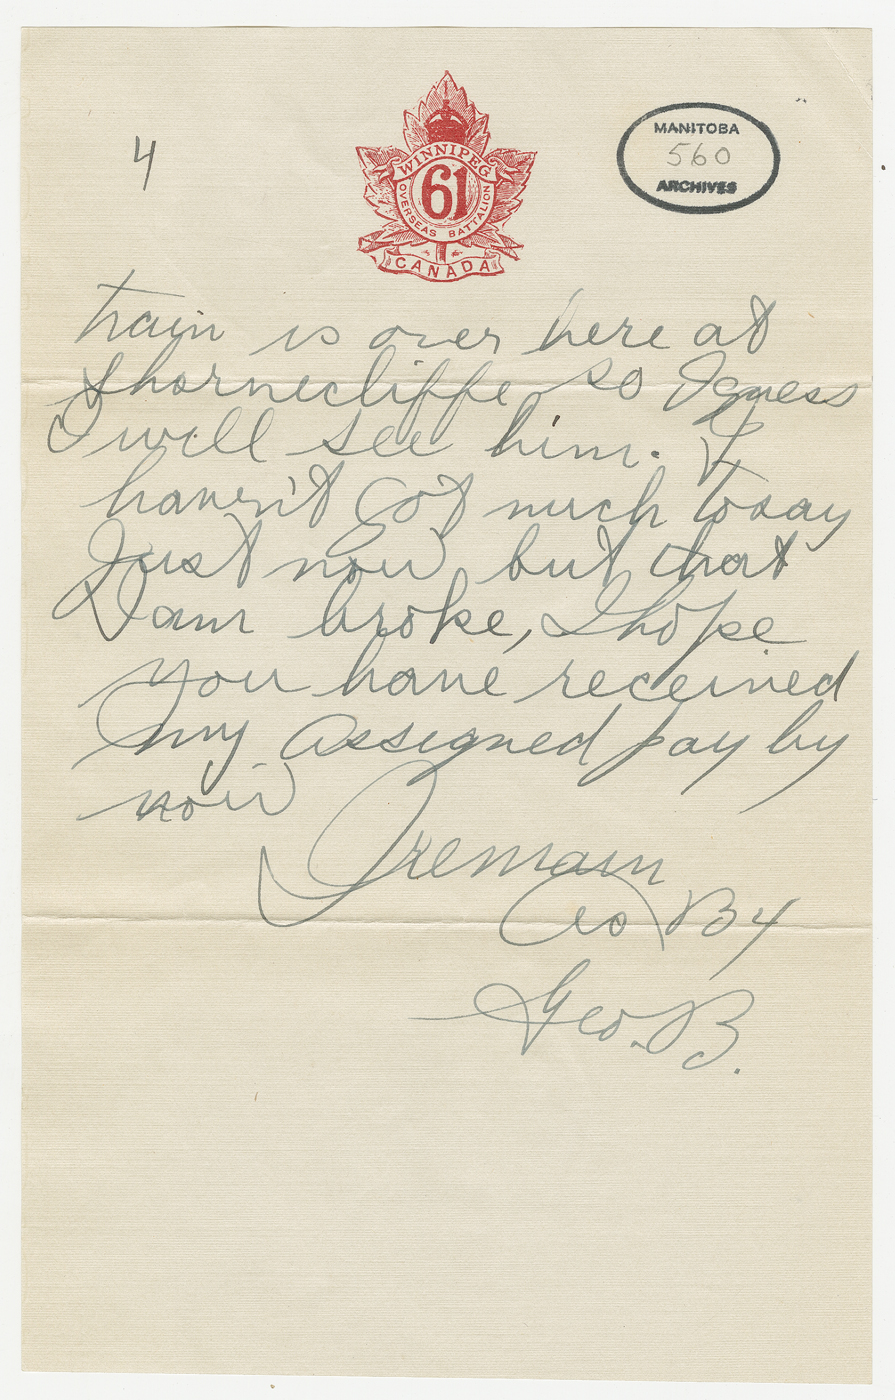 4
WINNIPEG
61
OVERSEAS BATTALION
CANADA
MANITOBA
560
ARCHIVES
train is over here at
Shornecliffe so I guess
I will see him. I
haven't got much to say
Just now but that
I am broke, I hope
you have received
my assigned pay by
now
I remain
as B4
Geo. B.